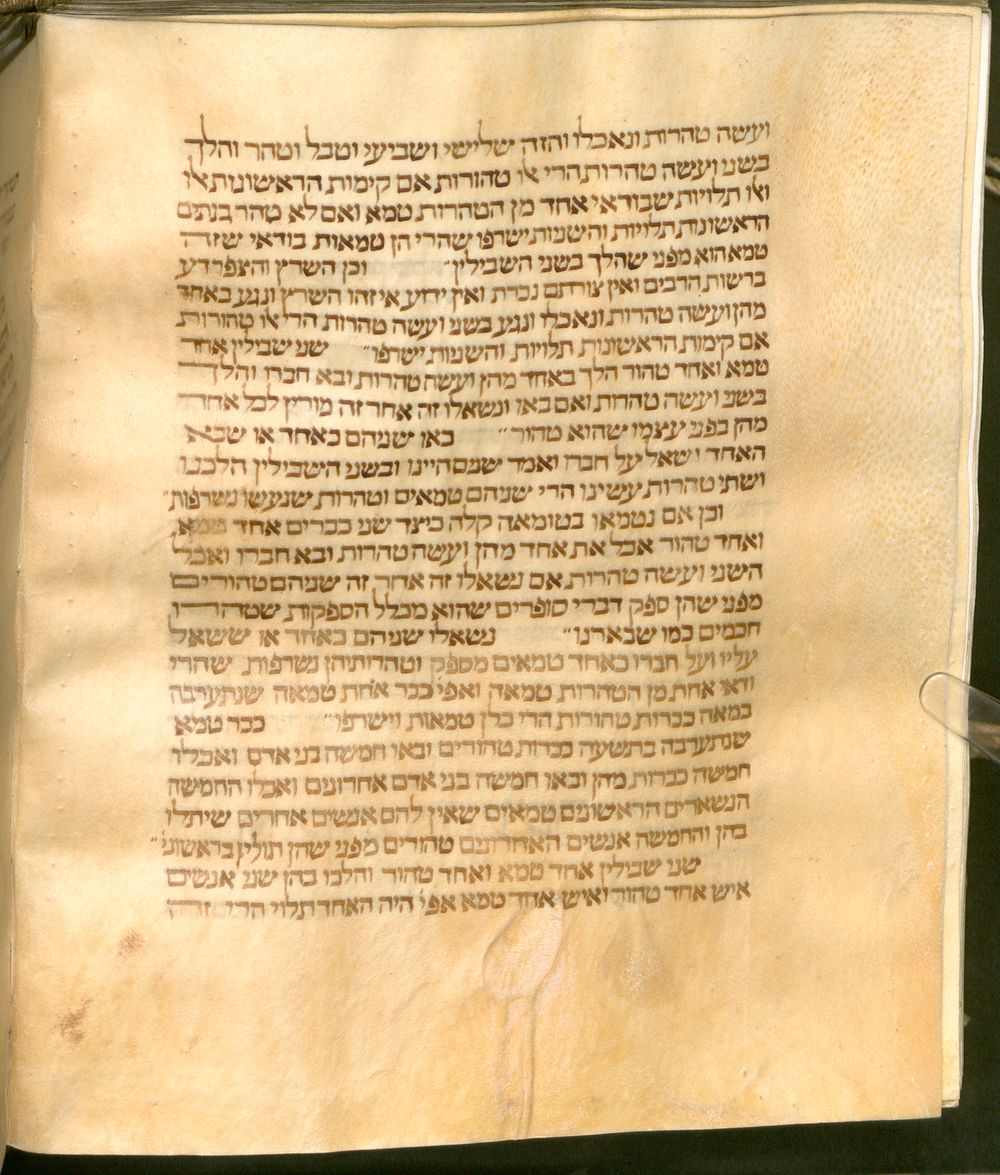 ועשה טהרות ונאכלו והזה שלישי ושביעי וטבל וטהר והלך
בשני ועשה טהרות הרי אלו טהורות אם קימות הראשונות אלו
ואלו תלויות שבודאי אחד מן הטהרות טמא ואם לא טהר בנתים
הראשונות תלויות והשניות ישרפו שהרי הן טמאות בודאי שזה
טמא הוא מפני שהלך בשני השבילין״ וכן השרץ והצפרדע
ברשות הרבים ואין צורתם נכרת ואין ידוע אי זהו השרץ ונגע באחד
מהן ועשה טהרות ונאכלו ונגע בשני ועשה טהרות הרי אלו טהורות
אם קימות הראשונות תלויות והשניות ישרפו״ שני שבילין אחד
טמא ואחד טהור הלך באחד מהן ועשה טהרות ובא חברו והלך
בשני ועשה טהרות ואם באו ונשאלו זה אחר זה מורין לכל אחד
מהן בפני עצמו שהוא טהור״ באו שניהם כאחד או שבא
האחד ושאל על חברו ואמר שנים היינו ובשני השבילין הלכנו
ושתי טהרות עשינו הרי שניהם טמאים וטהרות שנעשו נשרפות״
וכן אם נטמאו בטומאה קלה כיצד שני ככרים אחד טמא
ואחד טהור אכל את אחד מהן ועשה טהרות ובא חברו ואכל
השני ועשה טהרות אם נשאלו זה אחר זה שניהם טהורים
מפני שהן ספק דברי סופרים שהוא מכלל הספקות שטהרו
חכמים כמו שבארנו״ נשאלו שניהם כאחד או ששאל
עליו ועל חברו כאחד טמאים מספק וטהרותיהן נשרפות שהרי
ודאי אחת מן הטהרות טמאה ואפי׳ ככר אחת טמאה שנתערבה
במאה ככרות טהורות הרי כלן טמאות וישרפו״ ככר טמא
שנתערבה בתשעה ככרות טהורים ובאו חמשה בני אדם ואכלו
חמשה ככרות מהן ובאו חמשה בני אדם אחרונים ואכלו החמשה
הנשארים הראשונים טמאים שאין להם אנשים אחרים שיתלו
בהן והחמשה אנשים האחרונים טהורים מפני שהן תולין בראשוני׳״
שני שבילין אחד טמא ואחד טהור והלכו בהן שני אנשים
איש אחד טהור ואיש אחד טמא אפי׳ היה האחד תלוי הרי זה